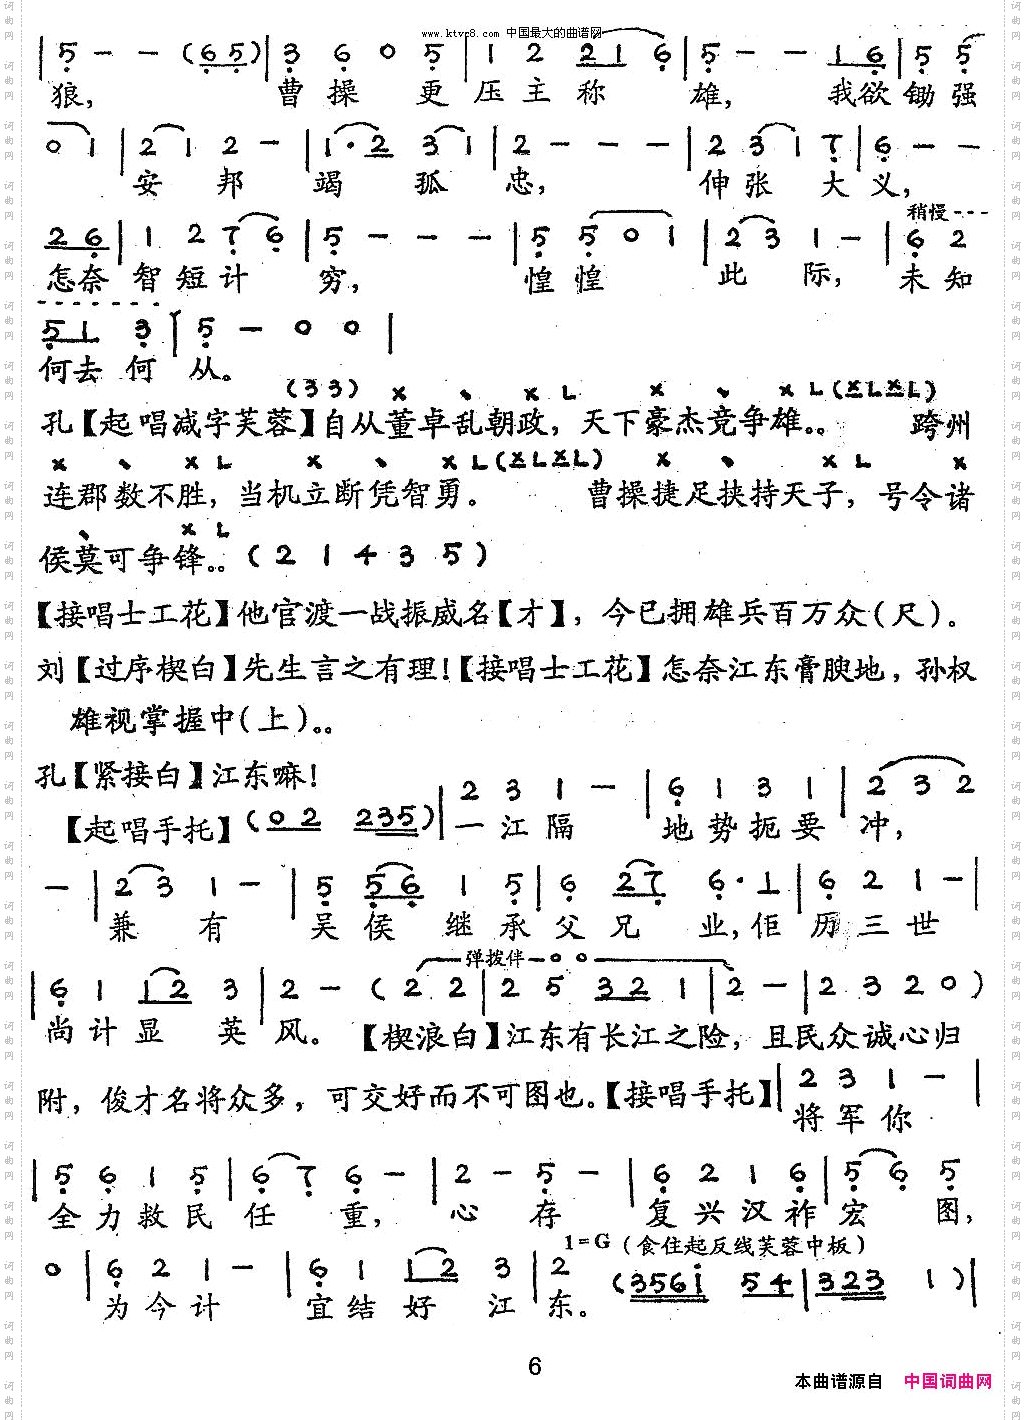 www.ktvc8.com 中国最大的曲谱网
| 5 - - (6 5) | 3 6 0 5 | 1 2 2 1 6 | 5 - - 1 6 | 5 5
狼， 曹 操 更 压 主 称 雄， 我欲 锄 强
0 1 | 2 1 2 - | 1· 2 3 1 | 2 - - - | 2 3 1 7 | 6 - -
安 邦 竭 孤 忠， 伸 张 大 义，
稍慢
2 6 | 1 2 7 6 | 5 - - - | 5 5 0 1 | 2 3 1 - | 6 2
怎奈 智 短 计 穷， 惶 惶 此 际， 未 知
5 1 3 | 5 - 0 0 |
何去 何 从。
(3 3) × 、 × L × 、 × L (×L×L)
孔【起唱减字芙蓉】自从董卓乱朝政，天下豪杰竞争雄。。 跨州
× 、 × L × 、 × L (×L×L) × 、 × L ×
连郡数不胜，当机立断凭智勇。 曹操捷足挟持天子，号令诸
、 × L
侯莫可争锋。。（2 1 4 3 5）
【接唱士工花】他官渡一战振威名【才】，今已拥雄兵百万众（尺）。
刘【过序楔白】先生言之有理！【接唱士工花】怎奈江东膏腴地，孙权
雄视掌握中（上）。。
孔【紧接白】江东嘛！
【起唱手托】(0 2 2 3 5) | 2 3 1 - | 6 1 3 1 | 2 3 2
一 江 隔 地 势 扼 要 冲，
- | 2 3 1 - | 5 5 6 1 5 | 6 2 7 6· 1 | 6 2 1 - |
兼 有 吴 侯 继 承 父 兄 业，佢 历 三 世
弹拨伴
| 6 1 1 2 3 | 2 - (2 2 | 2 5 3 2 1 | 2 - | 2 3 2 0)
尚 计 显 英 风。【楔浪白】江东有长江之险，且民众诚心归
附，俊才名将众多，可交好而不可图也。【接唱手托】| 2 3 1 - |
将 军 你
| 5 6 1 5 | 6 7 6 - | 2 - 5 - | 6 2 1 6 | 5 6 5
全 力 救 民 任 重， 心 存 复 兴 汉 祚 宏 图，
1=G（食住起反线芙蓉中板）
0 | 6 2 1 - | 6 1 1 2 3 | 2 (3 5 6 i 5 4 | 3 2 3 1) |
为 今 计 宜 结 好 江 东。
6
本曲谱源自 中国词曲网